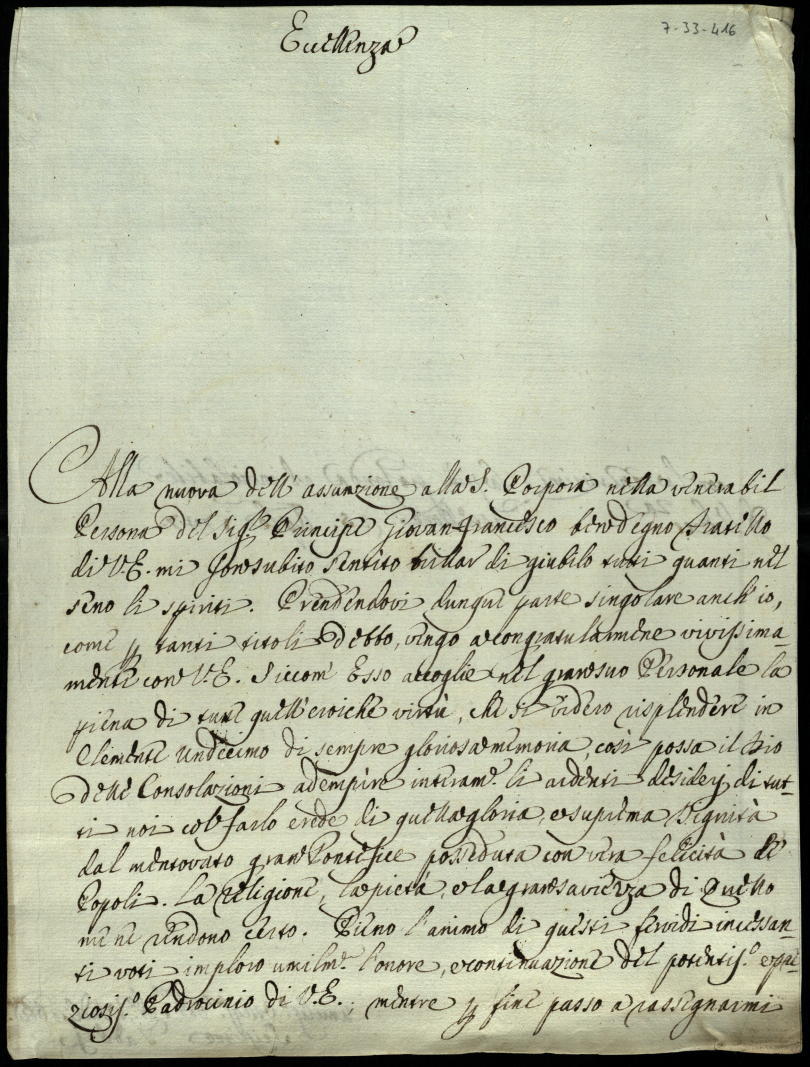 7-33-416
Eccellenza
Alla nuova dell' assunzione alla S. Porpora nella venerabil
Persona del Sig.r Principe Giovan Francesco ben degno Fratello
di V.E. mi son subito sentito brillar di giubilo tutti quanti nel
seno li spiriti. Prendendovi dunque parte singolare anch'io,
come p tanti titoli debbo, vengo a congratularmene vivissima-
mente con V.E. Siccom' Esso accoglie nel gran suo Personale la
piena di tutte quell' eroiche virtù, che si videro risplendere in
Clemente Undecimo di sempre gloriosa memoria, così possa il Dio
delle Consolazioni adempire interam.e li ardenti desiderj di tut-
ti noi col farlo erede di quella gloria, e suprema Dignità
dal mentovato gran Pontefice posseduta con vera felicità de'
Popoli. La religione, la pietà, e la gran saviezza di Quello
me ne rendono certo. Pieno l'animo di questi fervidi incessan-
ti voti imploro umilm.e l'onore, e continuazione del potentis.o e pre-
ziosis.o Padrocinio di V.E.; mentre p fine passo a rassegnarmi